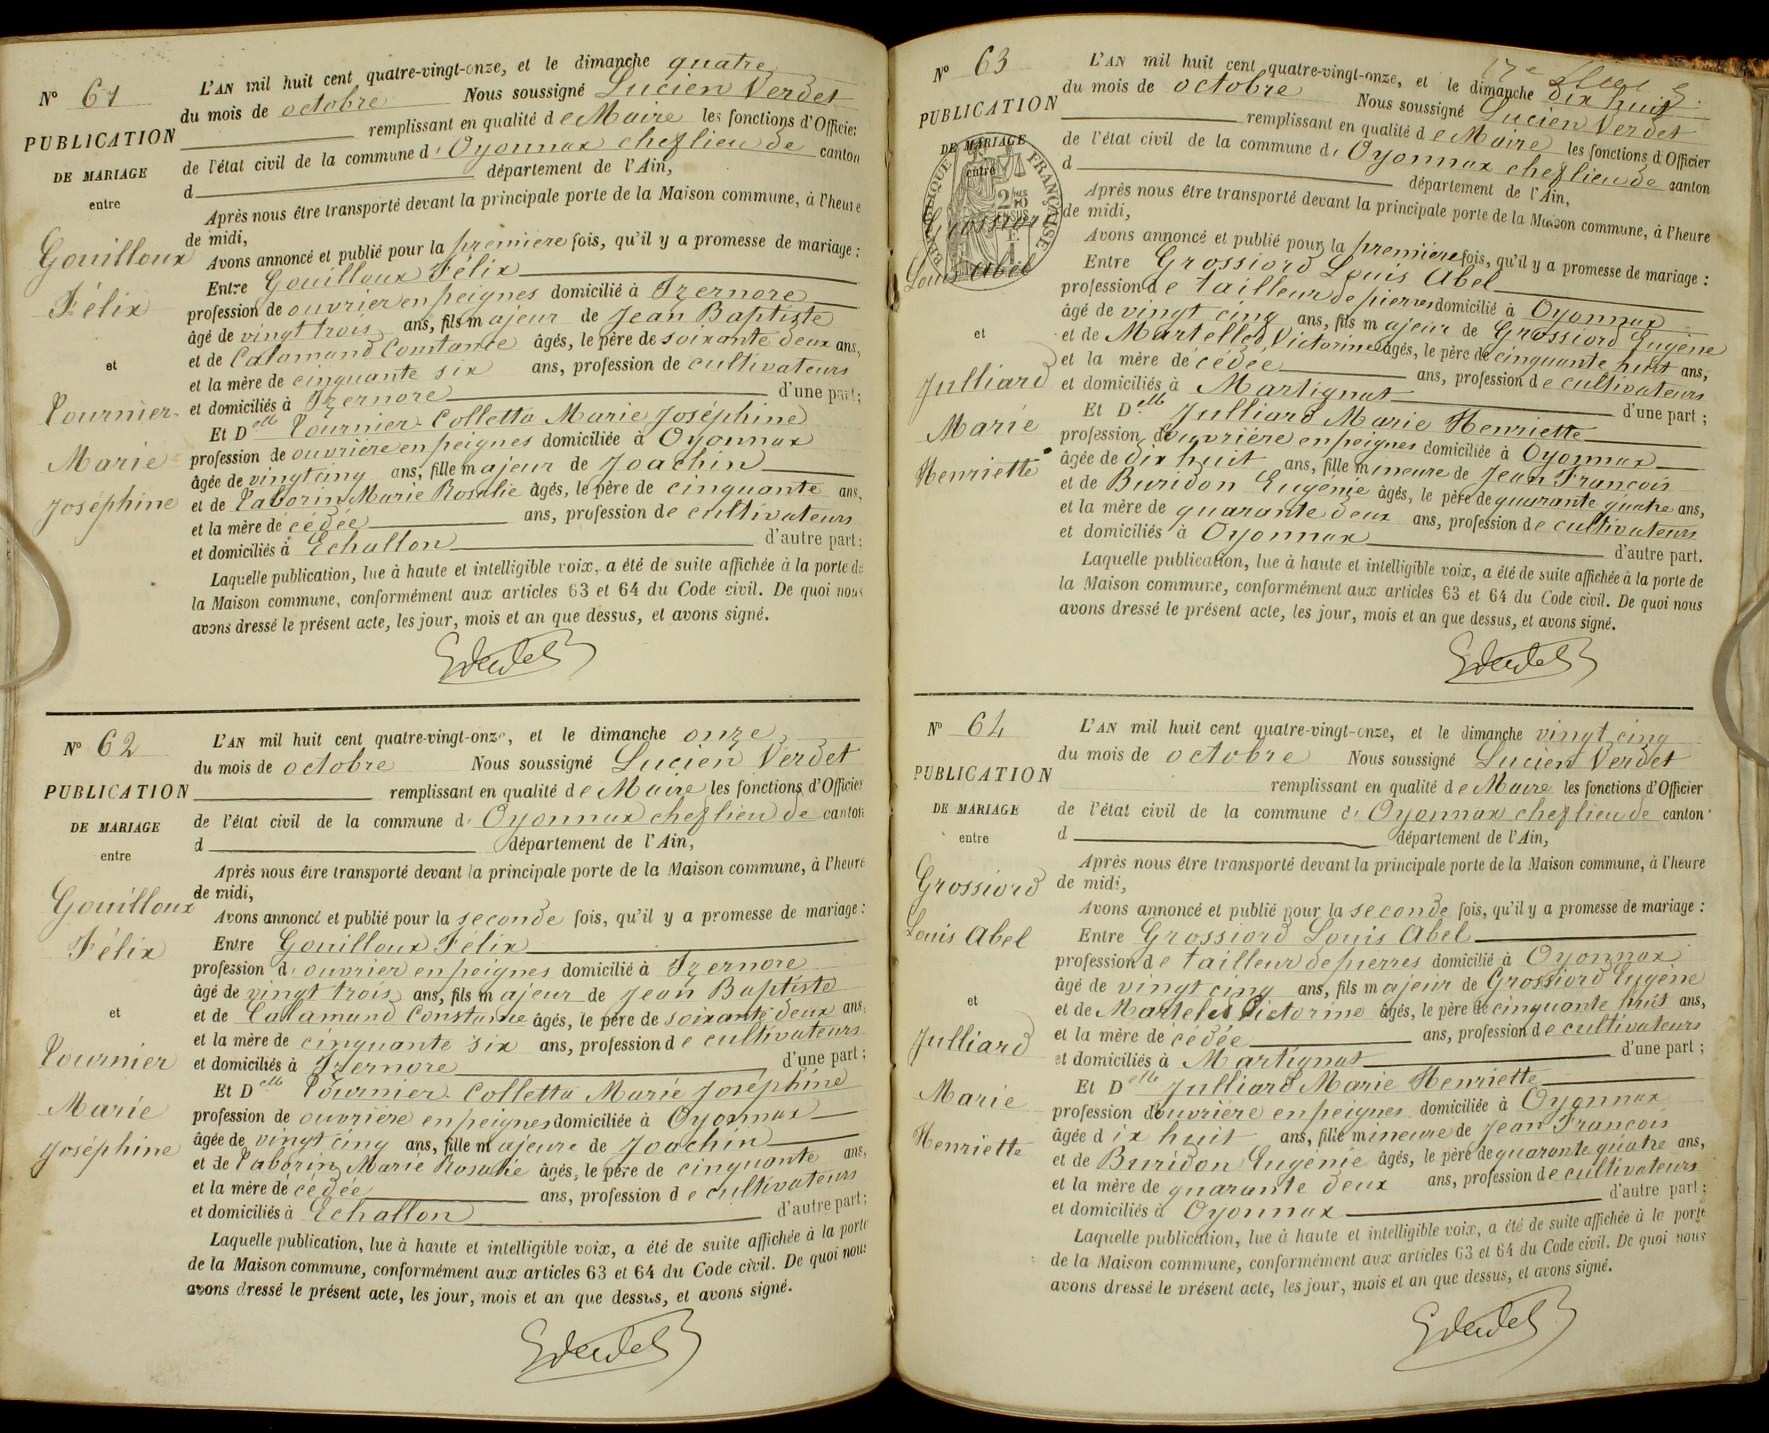 N° 61
PUBLICATION
DE MARIAGE
entre
Gouilloux
Félix
et
Tournier
Marie
Joséphine
L'AN mil huit cent quatre-vingt-onze, et le dimanche quatre
du mois de octobre Nous soussigné Lucien Verdet
remplissant en qualité de Maire les fonctions d'Officier
de l'état civil de la commune d' Oyonnax chef lieu de canton
d département de l'Ain,
Après nous être transporté devant la principale porte de la Maison commune, à l'heure
de midi,
Avons annoncé et publié pour la premiere fois, qu'il y a promesse de mariage :
Entre Gouilloux Félix
profession de ouvrier en peignes domicilié à Izernore
âgé de vingt trois ans, fils majeur de Jean Baptiste
et de Calamand Constance âgés, le père de soixante deux ans,
et la mère de cinquante six ans, profession de cultivateurs
et domiciliés à Izernore d'une part ;
Et Delle Tournier Colletta Marie Joséphine
profession de ouvrière en peignes domiciliée à Oyonnax
âgée de vingt cinq ans, fille majeur de Joachin
et de Taborin Marie Rosalie âgés, le père de cinquante ans,
et la mère de cédée ans, profession de cultivateurs
et domiciliés à Echallon d'autre part ;
Laquelle publication, lue à haute et intelligible voix, a été de suite affichée à la porte de
la Maison commune, conformément aux articles 63 et 64 du Code civil. De quoi nous
avons dressé le présent acte, les jour, mois et an que dessus, et avons signé.
N° 62
PUBLICATION
DE MARIAGE
entre
Gouilloux
Félix
et
Tournier
Marie
Joséphine
L'AN mil huit cent quatre-vingt-onze, et le dimanche onze
du mois de octobre Nous soussigné Lucien Verdet
remplissant en qualité de Maire les fonctions d'Officier
de l'état civil de la commune d' Oyonnax chef lieu de canton
d département de l'Ain,
Après nous être transporté devant la principale porte de la Maison commune, à l'heure
de midi,
Avons annoncé et publié pour la seconde fois, qu'il y a promesse de mariage :
Entre Gouilloux Félix
profession d' ouvrier en peignes domicilié à Izernore
âgé de vingt trois ans, fils majeur de Jean Baptiste
et de Calamand Constance âgés, le père de soixante deux ans,
et la mère de cinquante six ans, profession de cultivateurs
et domiciliés à Izernore d'une part ;
Et Delle Tournier Colletta Marie Joséphine
profession de ouvrière en peignes domiciliée à Oyonnax
âgée de vingt cinq ans, fille majeure de Joachin
et de Taborin Marie Rosalie âgés, le père de cinquante ans,
et la mère dé cédée ans, profession de cultivateurs
et domiciliés à Echallon d'autre part ;
Laquelle publication, lue à haute et intelligible voix, a été de suite affichée à la porte
de la Maison commune, conformément aux articles 63 et 64 du Code civil. De quoi nous
avons dressé le présent acte, les jour, mois et an que dessus, et avons signé.
N° 63
PUBLICATION
DE MARIAGE
entre
RÉPUBLIQUE FRANÇAISE
Grossiord
Louis Abel
et
Julliard
Marie
Henriette
L'AN mil huit cent quatre-vingt-onze, et le dimanche dix huit
du mois de octobre Nous soussigné Lucien Verdet
remplissant en qualité de Maire les fonctions d'Officier
de l'état civil de la commune d' Oyonnax chef lieu de canton
d département de l'Ain,
Après nous être transporté devant la principale porte de la Maison commune, à l'heure
de midi,
Avons annoncé et publié pour la premiére fois, qu'il y a promesse de mariage :
Entre Grossiord Louis Abel
profession de tailleur de pierres domicilié à Oyonnax
âgé de vingt cinq ans, fils majeur de Grossiord Eugène
et de Martelles Victorine âgés, le père de cinquante huit ans,
et la mère dé cédée ans, profession de cultivateurs
et domiciliés à Martignat d'une part ;
Et Delle Julliard Marie Henriette
profession d'ouvriére en peignes domiciliée à Oyonnax
âgée de dix huit ans, fille mineure de Jean François
et de Buridon Eugénie âgés, le père de quarante quatre ans,
et la mère de quarante deux ans, profession de cultivateurs
et domiciliés à Oyonnax d'autre part.
Laquelle publication, lue à haute et intelligible voix, a été de suite affichée à la porte de
la Maison commune, conformément aux articles 63 et 64 du Code civil. De quoi nous
avons dressé le présent acte, les jour, mois et an que dessus, et avons signé.
N° 64
PUBLICATION
DE MARIAGE
entre
Grossiord
Louis Abel
et
Julliard
Marie
Henriette
L'AN mil huit cent quatre-vingt-onze, et le dimanche vingt cinq
du mois de octobre Nous soussigné Lucien Verdet
remplissant en qualité de Maire les fonctions d'Officier
de l'état civil de la commune d' Oyonnax chef lieu de canton
d département de l'Ain,
Après nous être transporté devant la principale porte de la Maison commune, à l'heure
de midi,
Avons annoncé et publié pour la seconde fois, qu'il y a promesse de mariage :
Entre Grossiord Louis Abel
profession de tailleur de pierres domicilié à Oyonnax
âgé de vingt cinq ans, fils majeur de Grossiord Eugène
et de Marteles Victorine âgés, le père de cinquante huit ans,
et la mère de cédée ans, profession de cultivateurs
et domiciliés à Martignat d'une part ;
Et Delle Julliard Marie Henriette
profession d'ouvriére en peignes domiciliée à Oyonnax
âgée dix huit ans, fille mineure de Jean François
et de Buridon Eugénie âgés, le père de quarante quatre ans,
et la mère de quarante deux ans, profession de cultivateurs
et domiciliés à Oyonnax d'autre part ;
Laquelle publication, lue à haute et intelligible voix, a été de suite affichée à la porte
de la Maison commune, conformément aux articles 63 et 64 du Code civil. De quoi nous
avons dressé le présent acte, les jour, mois et an que dessus, et avons signé.